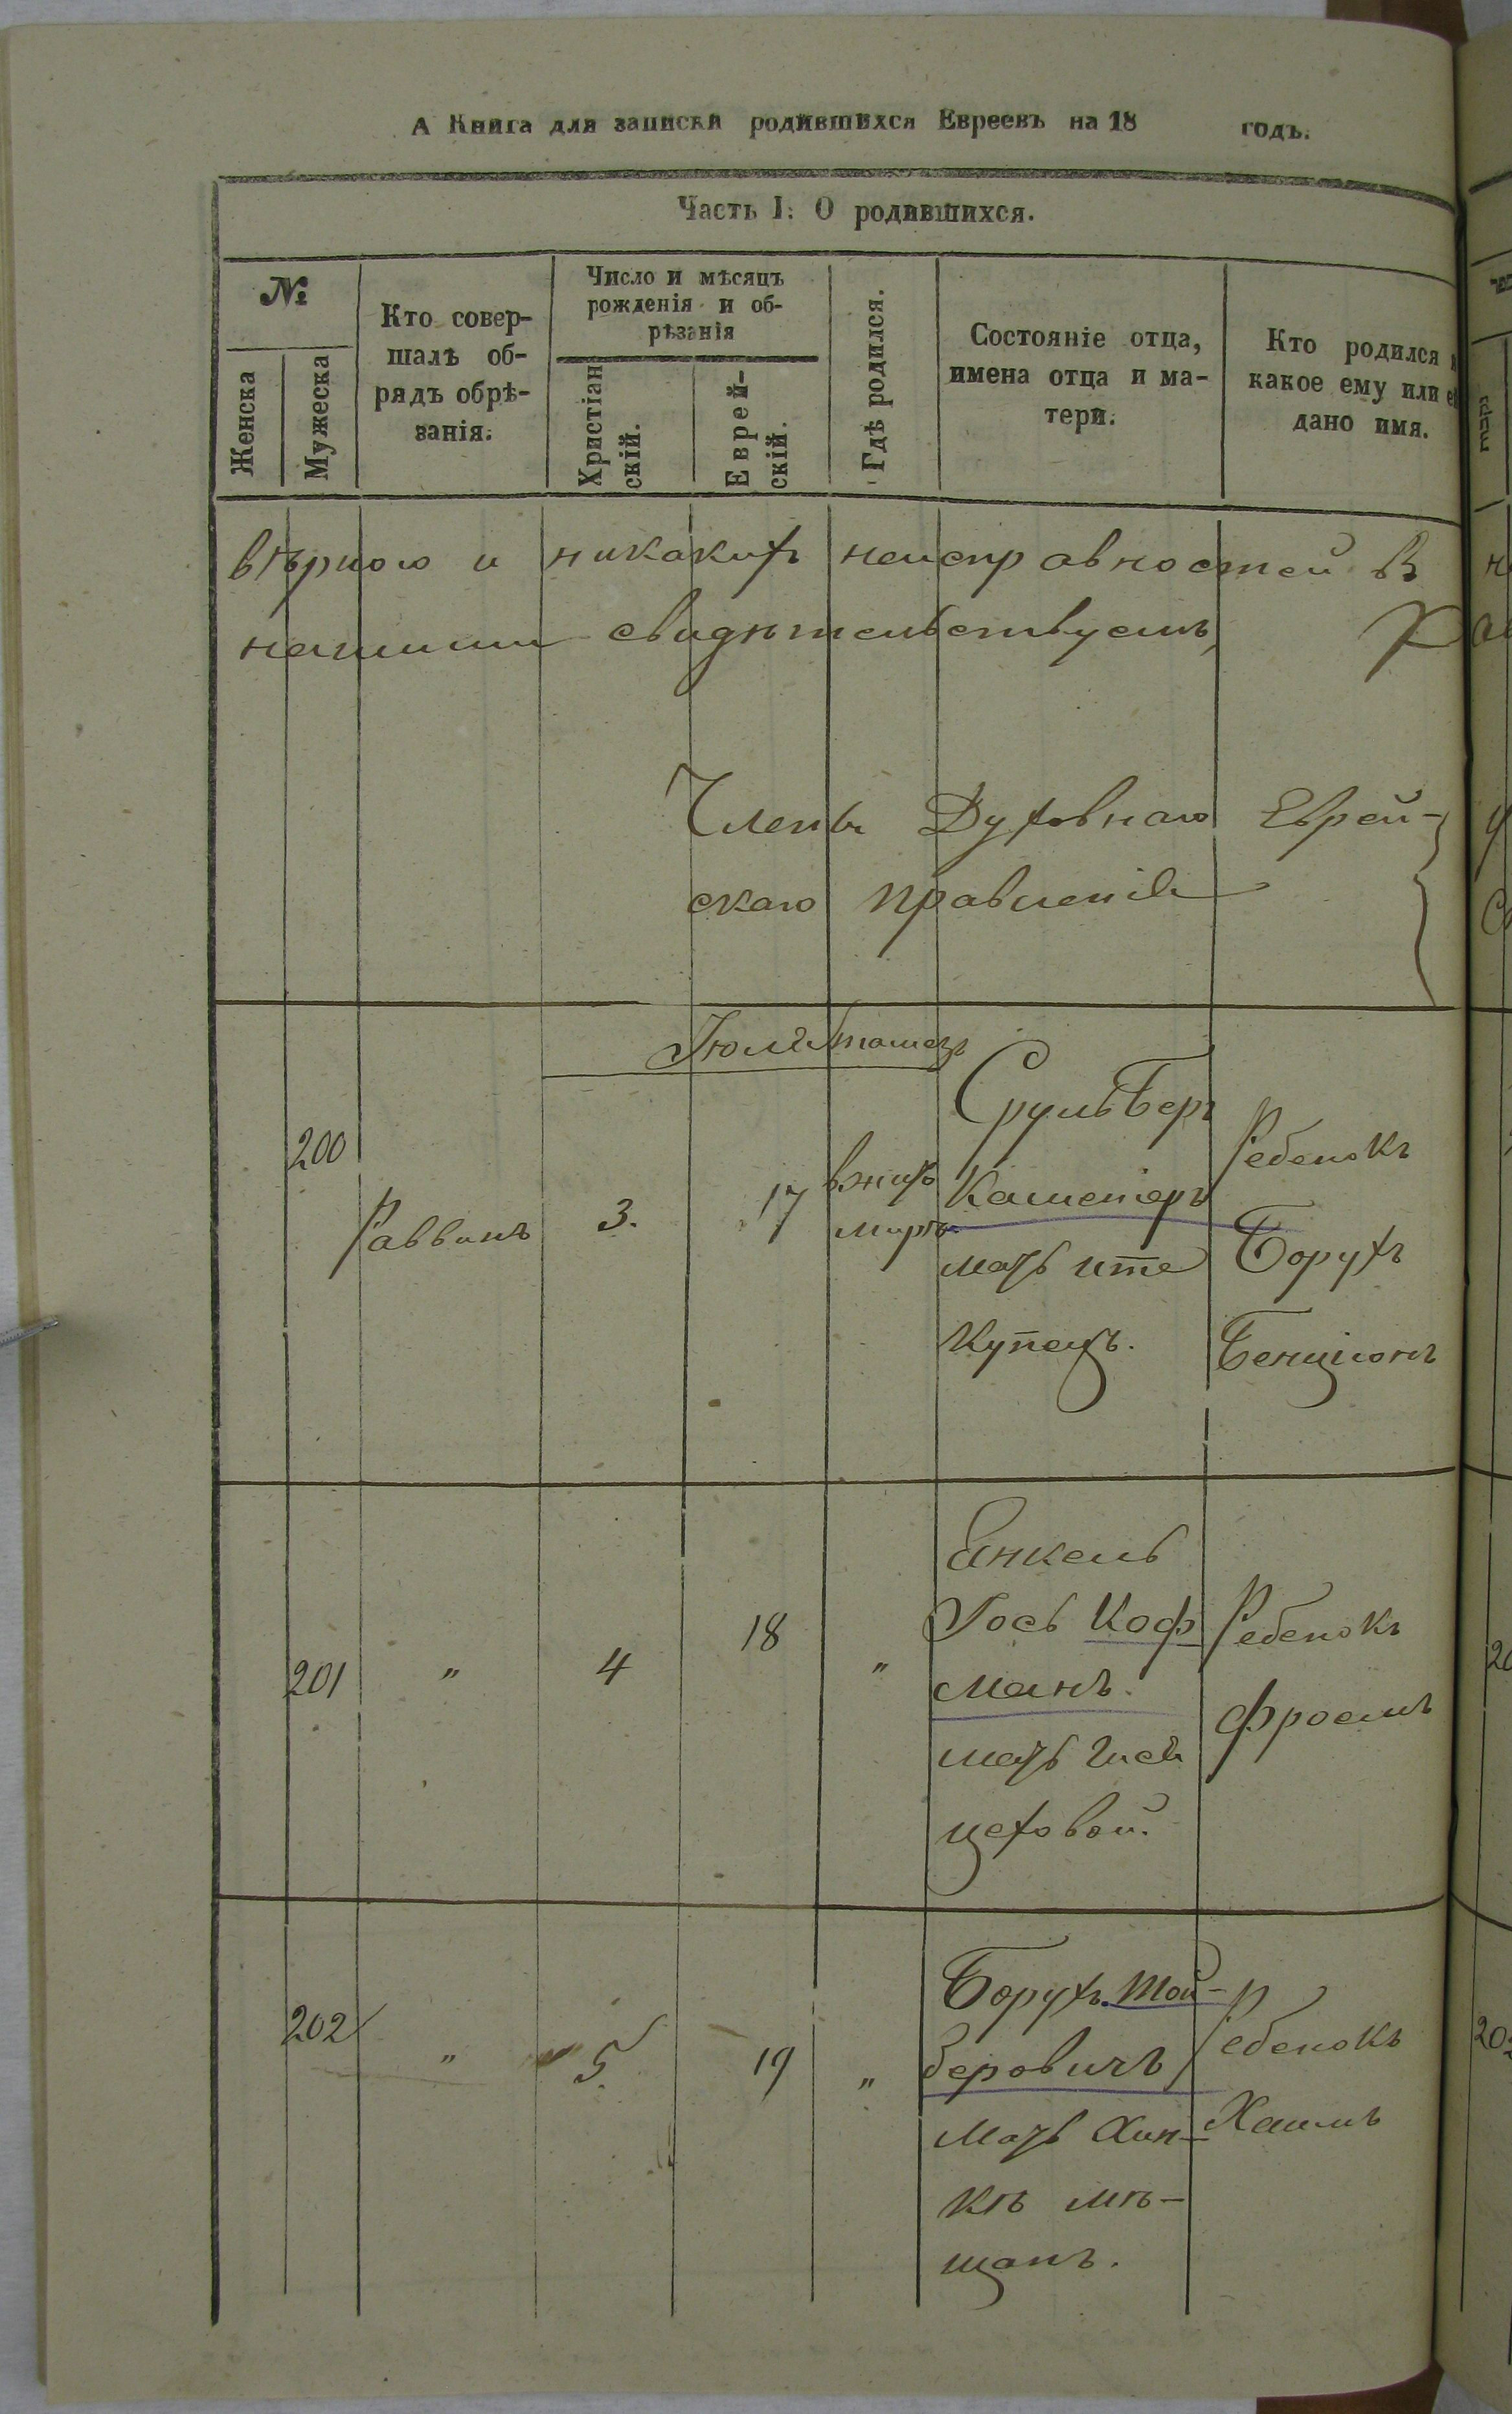 А Книга для записки родившихся Евреевъ на 18 годъ.
Часть I. О родившихся.
№
Женска
Мужеска
Кто совер-
шалъ об-
рядъ обрѣ-
занія.
Число и мѣсяцъ
рожденія и об-
рѣзанія
Христіан
скій.
Еврей-
скій.
Гдѣ родился.
Состояніе отца,
имена отца и ма-
тери.
Кто родился
какое ему или
дано имя.
вѣрною и никакихъ неисправностей въ
свидѣтельствуемъ,
Члены Духовнаго Еврей-
скаго правленія
200
Раввинъ
Іюль
3.
17
вжит
мирѣ
Сруль Беръ
мать ите
Купецъ.
Ребенокъ
Борухъ
Бенціонъ
201
"
4
18
"
Янкель
Іось Коф
манъ.
мать
цеховой.
Ребенокъ
Фроемъ
202
"
5
19
"
Борухъ Мой-
беровичъ
мать Хин-
кѣ мѣ-
щанъ.
Ребенокъ
Хаимъ